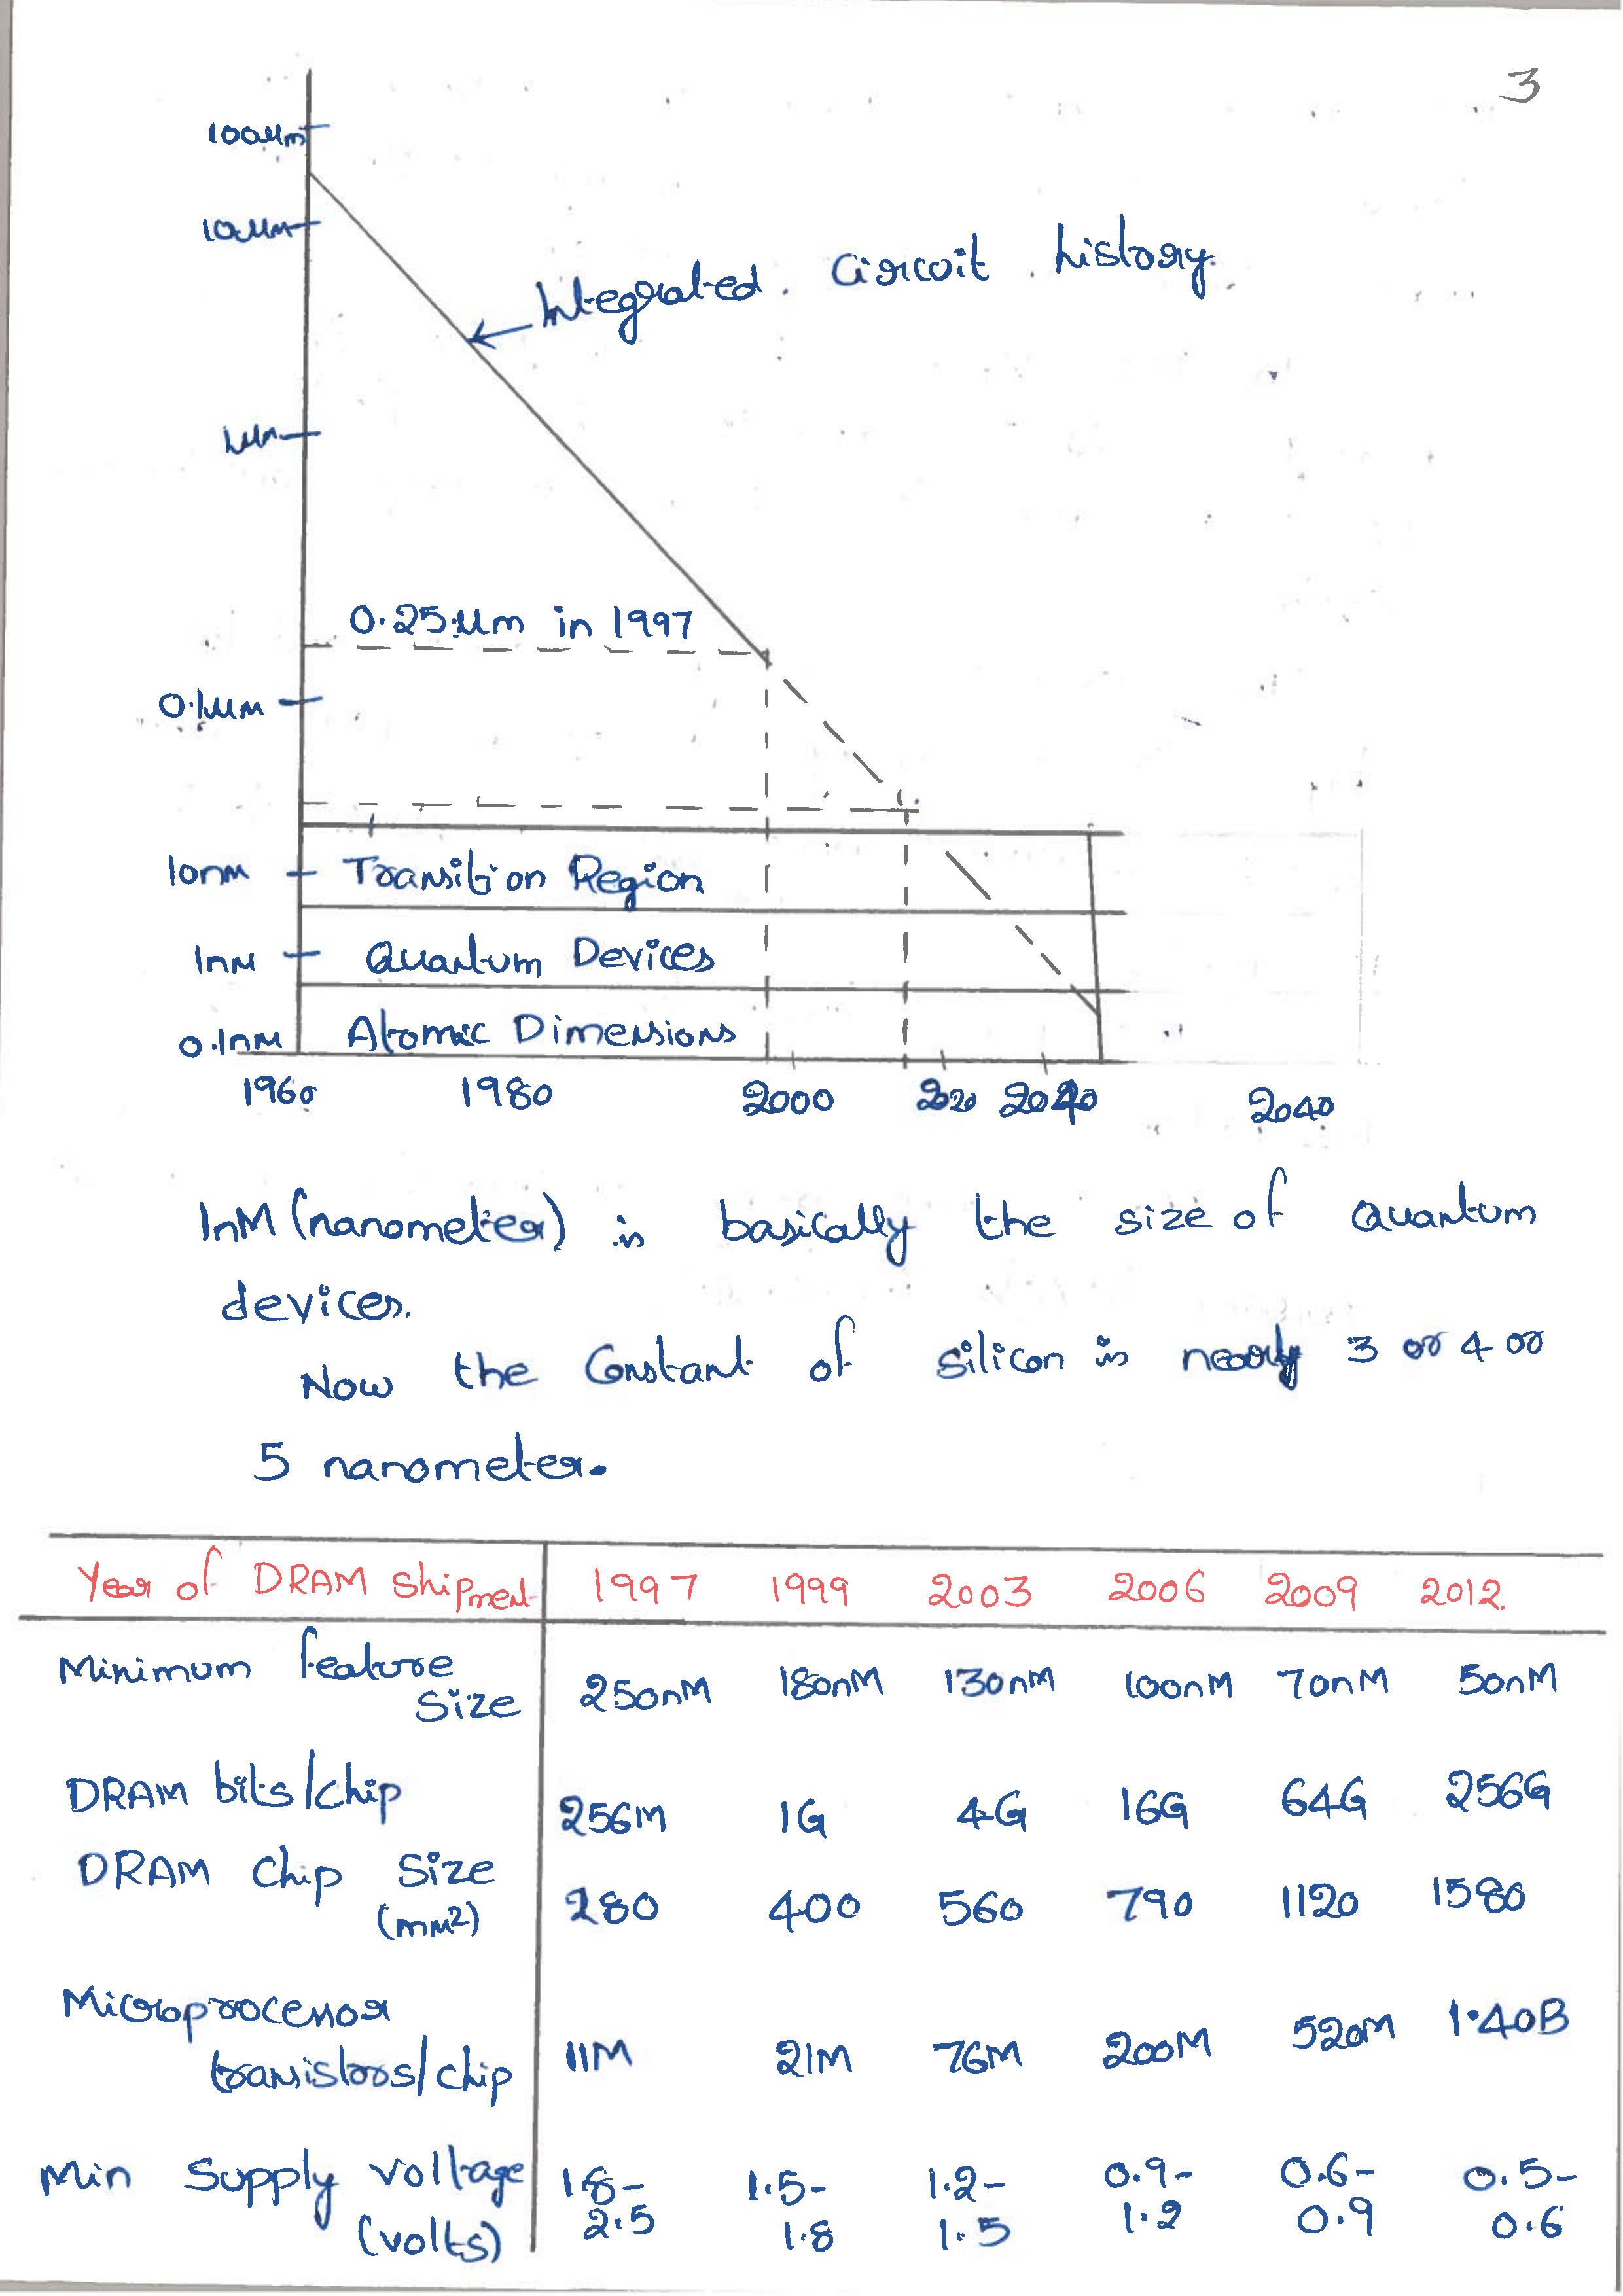 3
100µm
10µm
Integrated circuit history.
1µm
0.25µm in 1997
0.1µm
10nm Transition Region
1nm Quantum Devices
0.1nm Atomic Dimensions
1960 1980 2000 2020 2040
1nM (nanometer) is basically the size of Quantum
devices.
Now the Constant of silicon is nearly 3 or 4 or
5 nanometer.
Year of DRAM shipment 1997 1999 2003 2006 2009 2012
Minimum feature
size 250nM 180nM 130nM 100nM 70nM 50nM
DRAM bits/chip 256M 1G 4G 16G 64G 256G
DRAM chip size
(mm2) 280 400 560 790 1120 1580
Microprocessor
transistors/chip 11M 21M 76M 200M 520M 1.40B
Min Supply voltage 1.8- 1.5- 1.2- 0.9- 0.6- 0.5-
(volts) 2.5 1.8 1.5 1.2 0.9 0.6